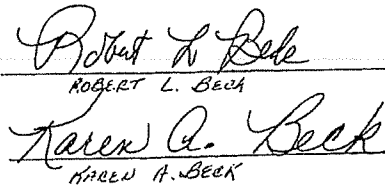 Robert L Beck
ROBERT L. BECK
Karen A. Beck
KAREN A. BECK